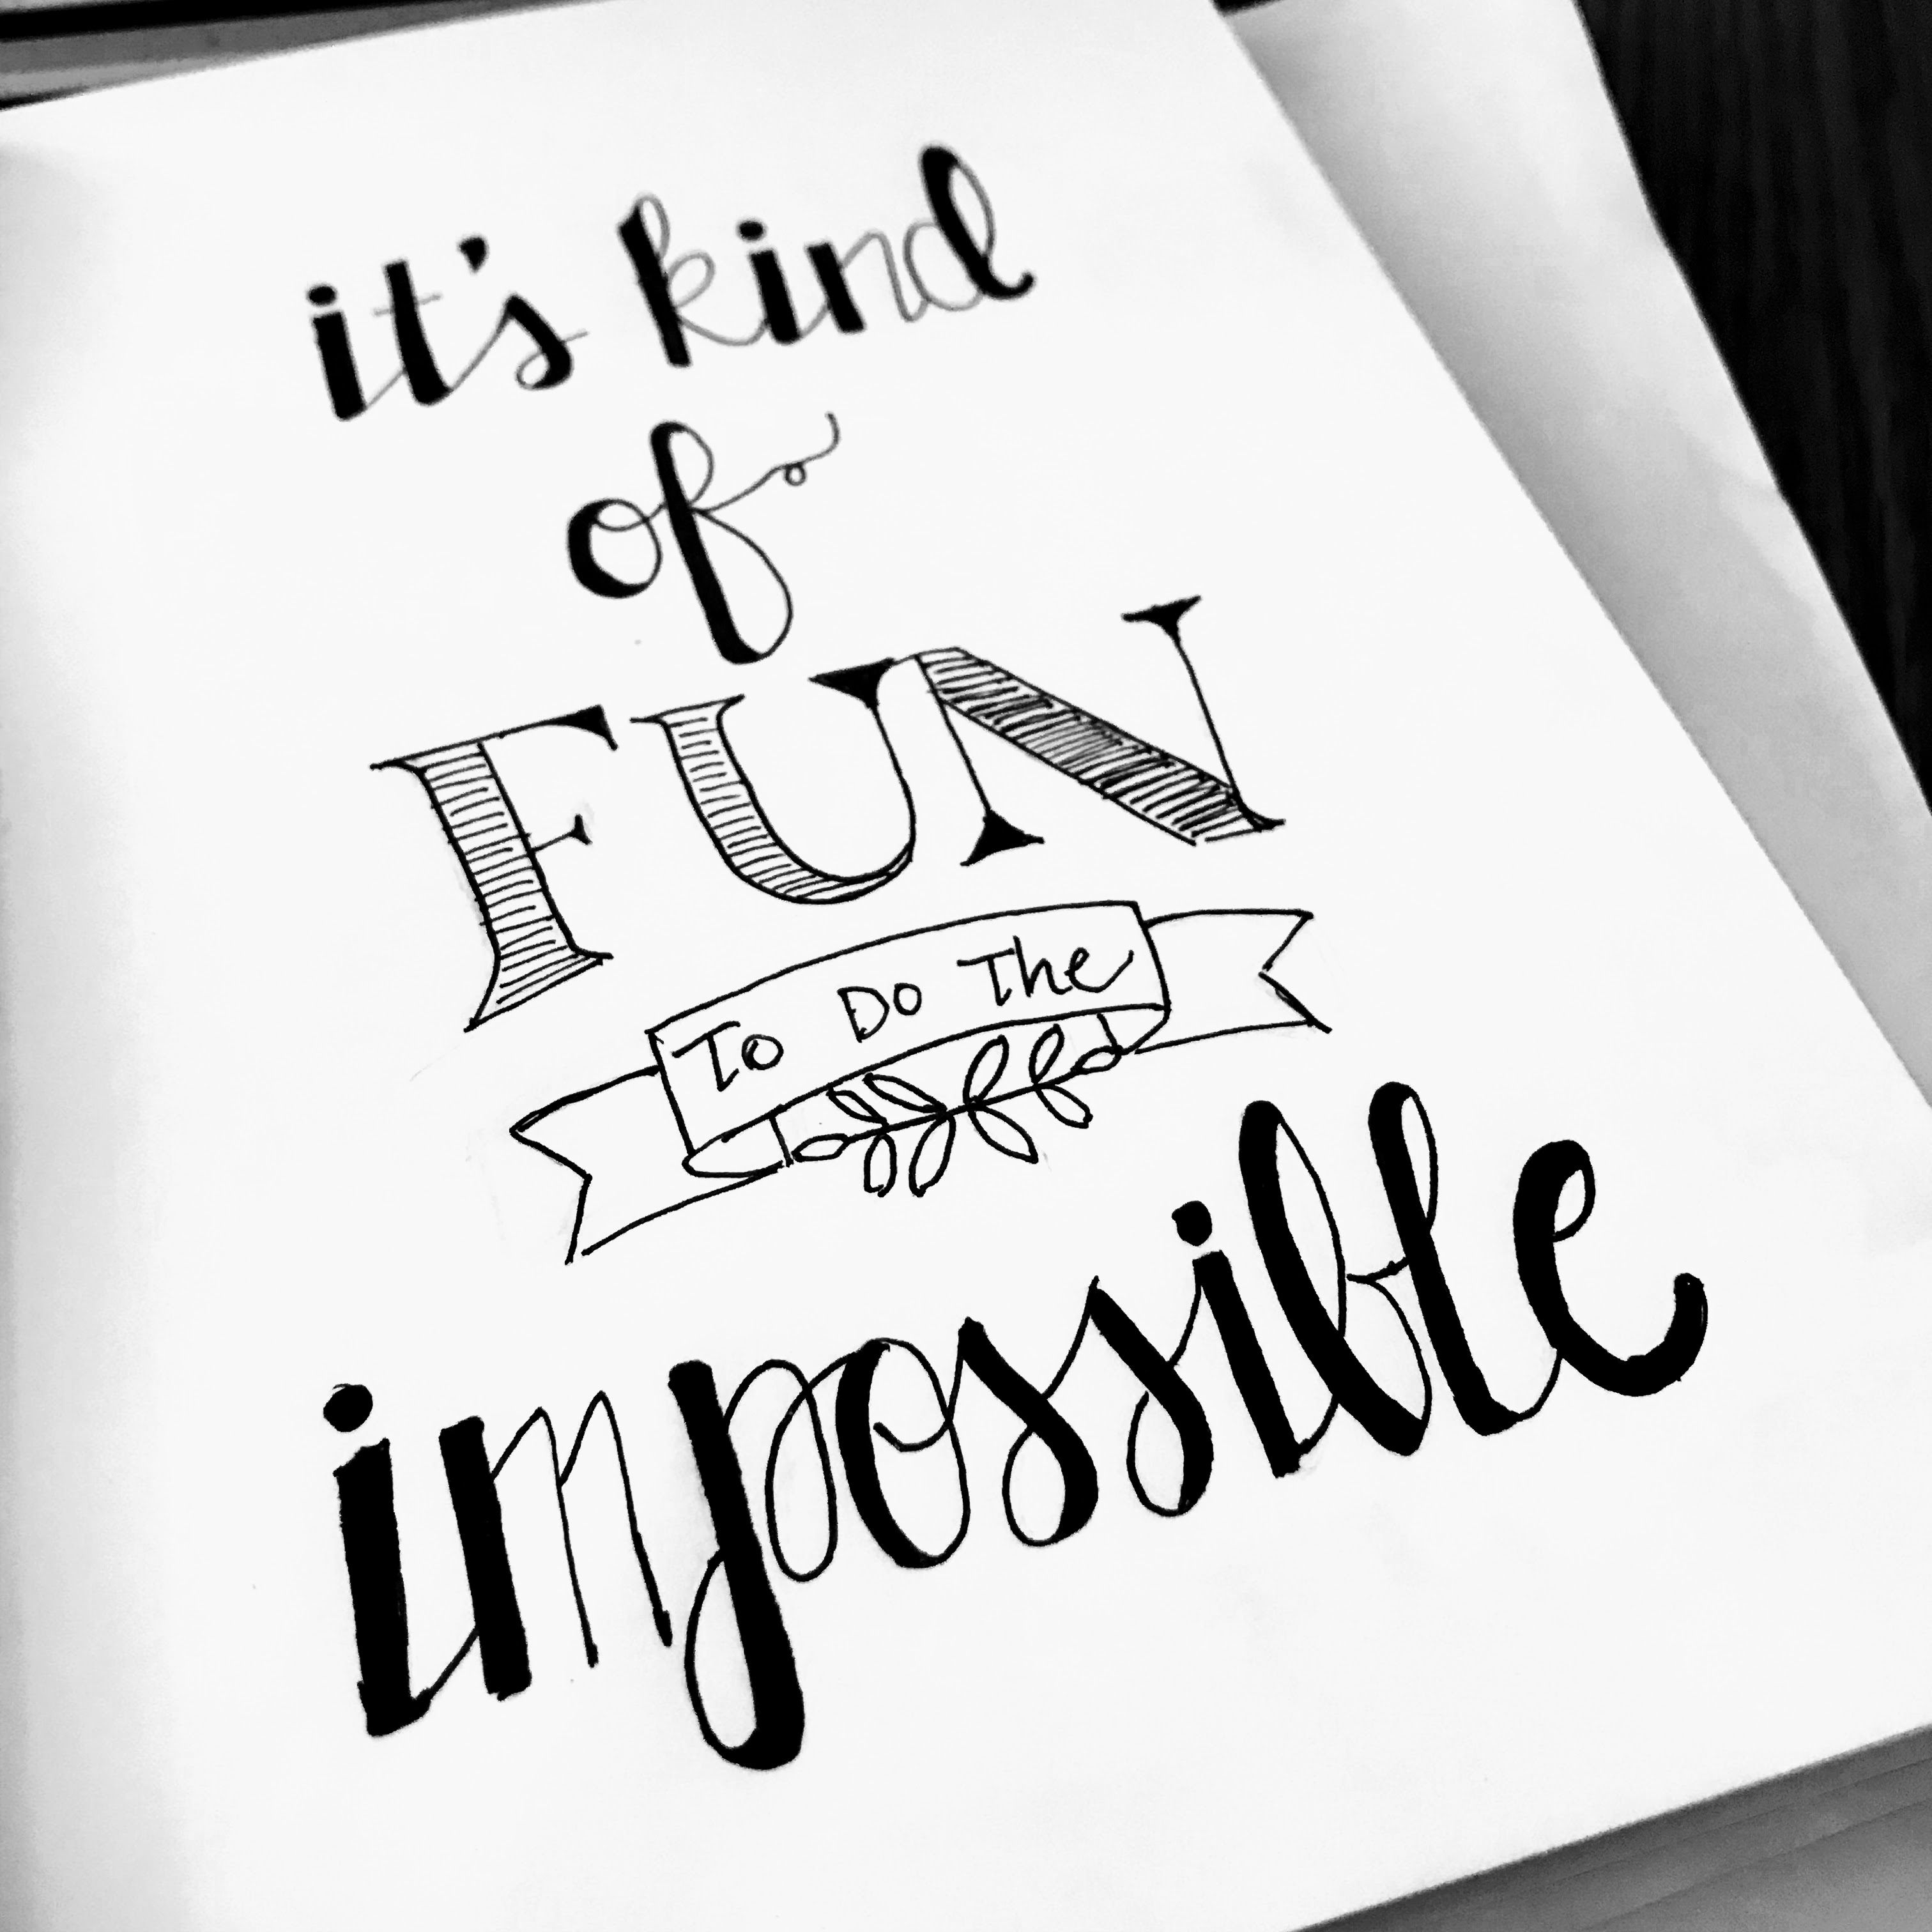 it's kind
of
FUN
To Do The
impossible